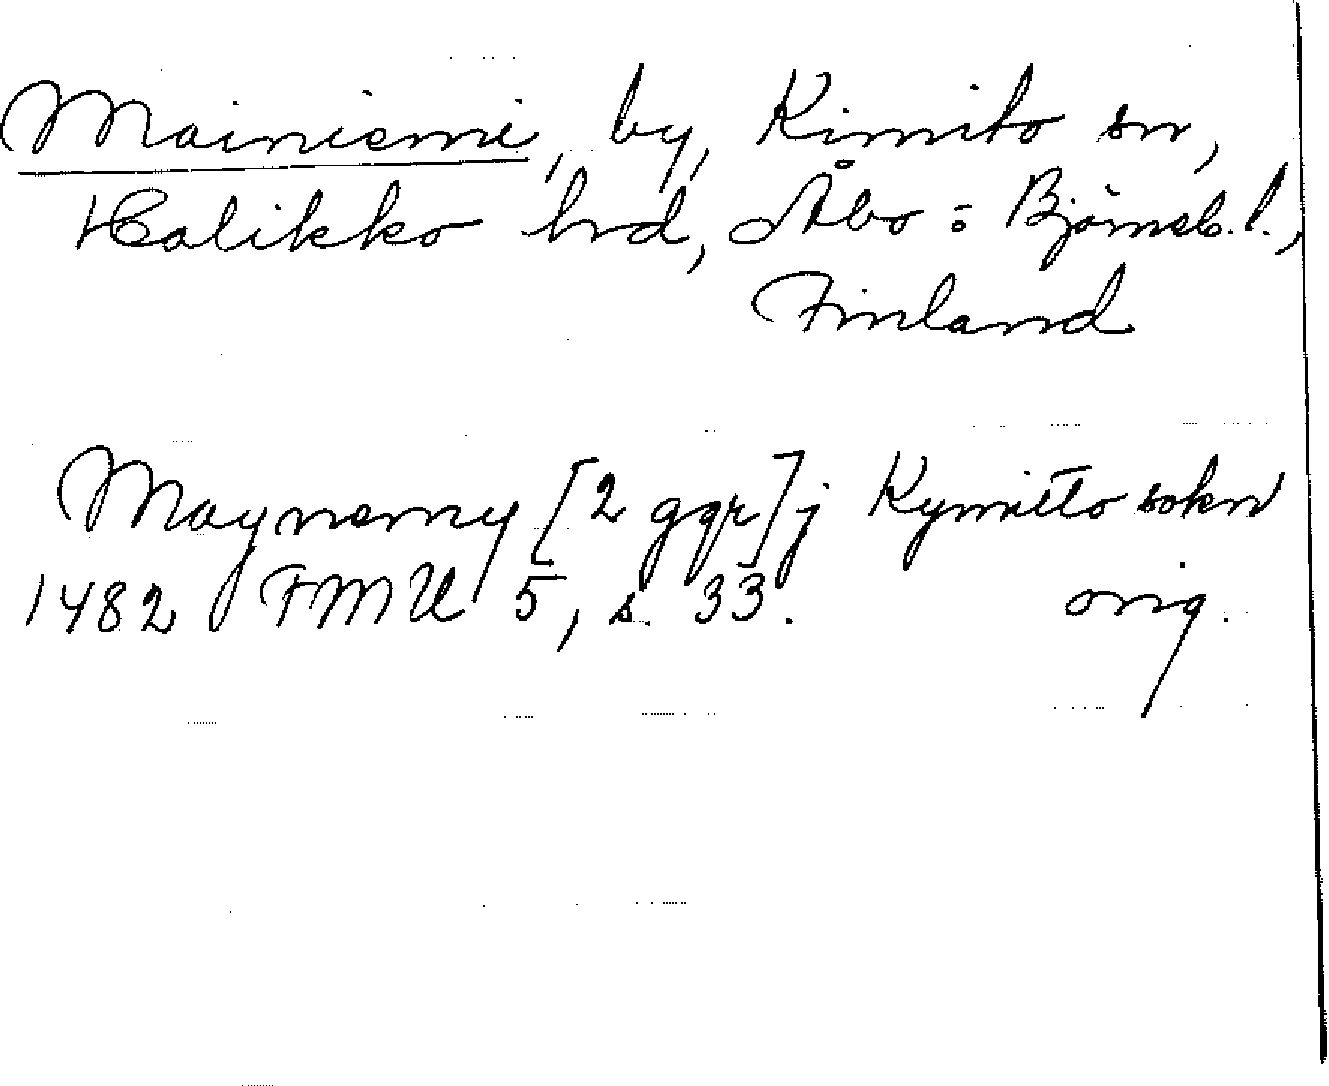 Mainiemi, by, Kimito sn,
Halikko hrd, Åbo = Björneb. l.,
Finland
Maynemy [2 ggr] j Kymitto sokn
1482 FMU 5, s. 33. orig.